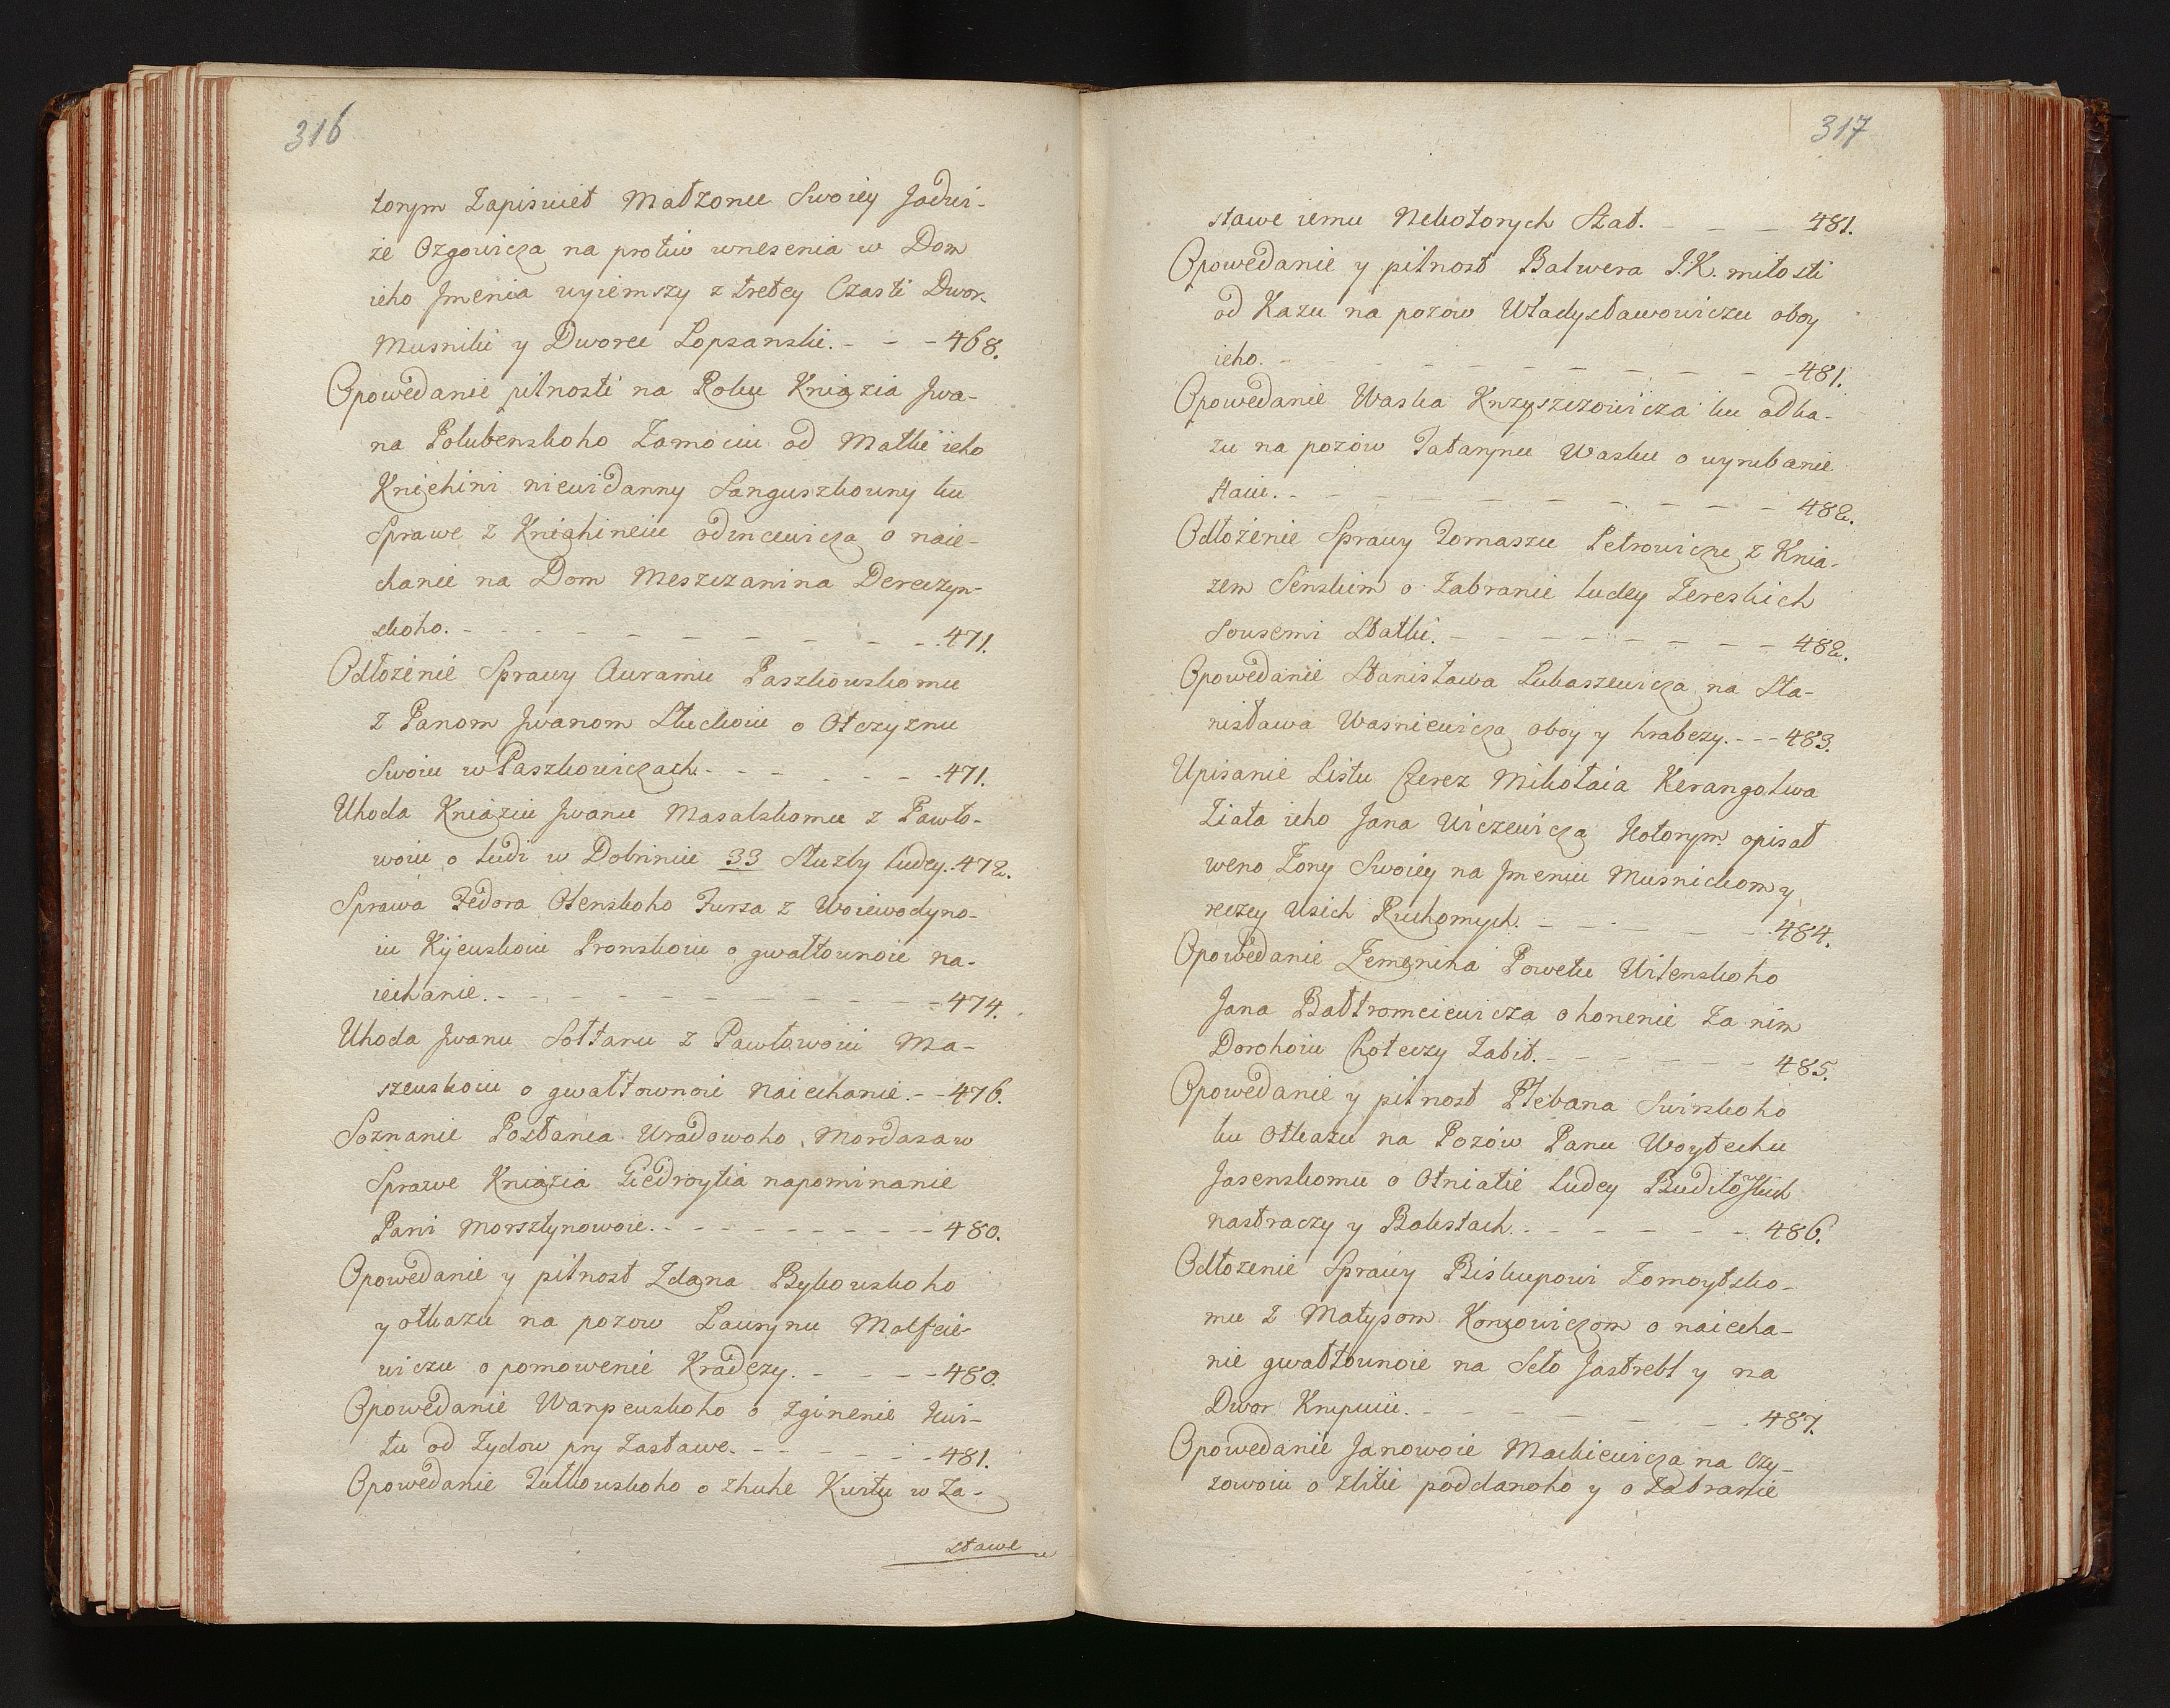 316
torym Zapisuiet Małżonce Swoiey Jadwi-
że Ozgowicza na protiw wnesenia w Dom
ieho Jmenia uyiemszy z tretey Czasti Dwor.
Musniki y Dworec Lopsanski. - - - 468.
Opowedanie pilnosti na Roku Kniazia Jwa-
na Polubenskoho Zamociu od Matki ieho
Kniehini niewidanny Sanguszkowny ku
Sprawe z Kniahineiu odincewicza o naie-
chanie na Dom Meszczanina Dereczyn-
skoho. - - - - - - - - - - 471.
Odłożenie Sprawy Auramu Paszkouskomu
z Panom Jwanom Sluckoiu o Otczyznu
Swoiu w Paszkowiczach. - - - - - - 471.
Uhoda Kniaziu Jwanu Masalskomu z Pawło-
woiu o ludi w Dobriniu 33 Służby ludey. 472.
Sprawa Fedora Olenskoho Jursa z Woiewodyno-
iu Kijeuskoiu Pronskoiu o gwałtounoie na-
iechanie. - - - - - - - - - - 474.
Uhoda Jwanu Sołtanu z Pawłowoiu Ma-
szeuskoiu o gwałtownoie naiechanie. - - 476.
Soznanie Posłania Uradowoho Mordasa w
Sprawe Kniazia Giedroytia napominanie
Pani Morsztynowoie. - - - - - - - - 480.
Opowedanie y pilnost Zdana Bykouskoho
y otkazu na pozow Laurynu Matfeie-
wiczu o pomowenie Kradezy. - - - - 480.
Opowedanie Warpeuskoho o zginenie Kwi-
tu od Żydow pry Zastawe. - - - - - 481.
Opowedanie Jutkouskoho o zhuhe Kwitu w Za-
stawe
317
stawe iemu Nekotorych Szat. - - - 481.
Opowedanie y pilnost Balwera J. K. miłosti
od Kazu na pozow Władysławowiczu oboy
ieho. - - - - - - - - - - 481.
Opowedanie Waska Krzyszczowicza ku odka-
zu na pozow Tatarynu Wasku o wyrubanie
stawu. - - - - - - - - - 482.
Odłożenie Sprawy Tomaszu Petrowiczu z Knia-
zem Senskim o Zabranie ludey Zereskich
Sousemi Statki. - - - - - - - - 482.
Opowedanie Stanisława Lukaszewicza na Sta-
nisława Wasniewicza oboy y hrabezy. - - - 483.
Upisanie Listu Czerez Mikołaia Kerangołwa
Ziatia ieho Jana Uiczewicza Kotorym opisał
weno Żony Swoiey na Jmeniu Musnickom y
reczey Usich Ruchomych. - - - - - - 484.
Opowedanie Zemenina Powetu Wilenskoho
Jana Bałtromeiewicza o honenie Za nim
Dorohoiu Choteczy Zabit. - - - - - - 485.
Opowedanie y pilnost Plebana Swirskoho
ku Otkazu na Pozów Panu Woytechu
Jasenskomu o Otniatie ludey
nastraczy y Bolestach. - - - - - - 486.
Odłożenie Sprawy Biskupowi Żomoytsko-
mu z Matysom Konzowiczom o naiecha-
nie gwałtounoie na Seło Jastrebl y na
Dwor Krupuiu. - - - - - - - 487.
Opowedanie Janowoie Mackiewicza na Czy-
zowoiu o zbitie poddanoho y o Zabranie